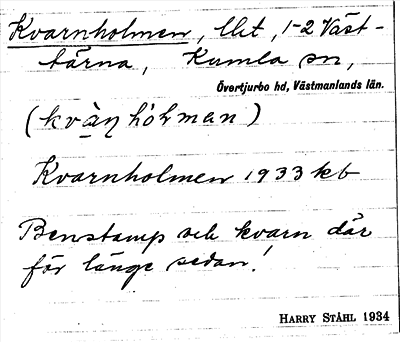 Kvarnholmen, lht, 1-2 Väst-
tärna, Kumla sn,
Övertjurbo hd, Västmanlands län.
(kvàŋhòlman)
Kvarnholmen 1933 kb
Benstamp och kvarn där
för länge sedan!
HARRY STÅHL 1934